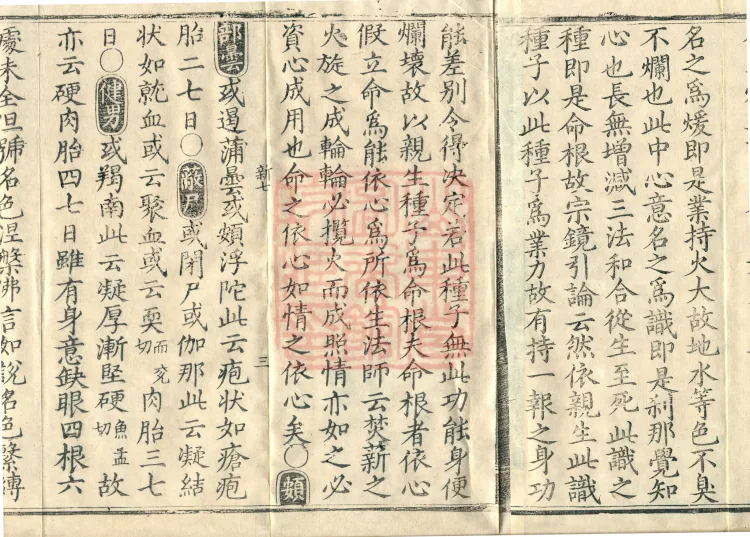 名之為煖即是業持火大故地水等色不臭
不爛也此中心意名之為識即是刹那覺知
心也長無增減三法和合從生至死此識之
種即是命根故宗鏡引論云然依親生此識
種子以此種子為業力故有持一報之身功
能差別今得決定若此種子無此功能身便
爛壞故以親生種子為命根夫命根者依心
假立命為能依心為所依生法師云焚薪之
火旋之成輪輪必攬火而成照情亦如之必
資心成用也命之依心如情之依心矣〇頞
新七
三
部曇或遏蒲曇或頞浮陀此云疱狀如瘡疱
胎二七日〇蔽尸或閉尸或伽那此云凝結
狀如就血或云聚血或云耎而兖切肉胎三七
日〇健男或羯南此云凝厚漸堅硬魚孟切故
亦云硬肉胎四七日雖有身意缺眼四根六
處未全旦號名色涅槃佛言如說名色繫縛